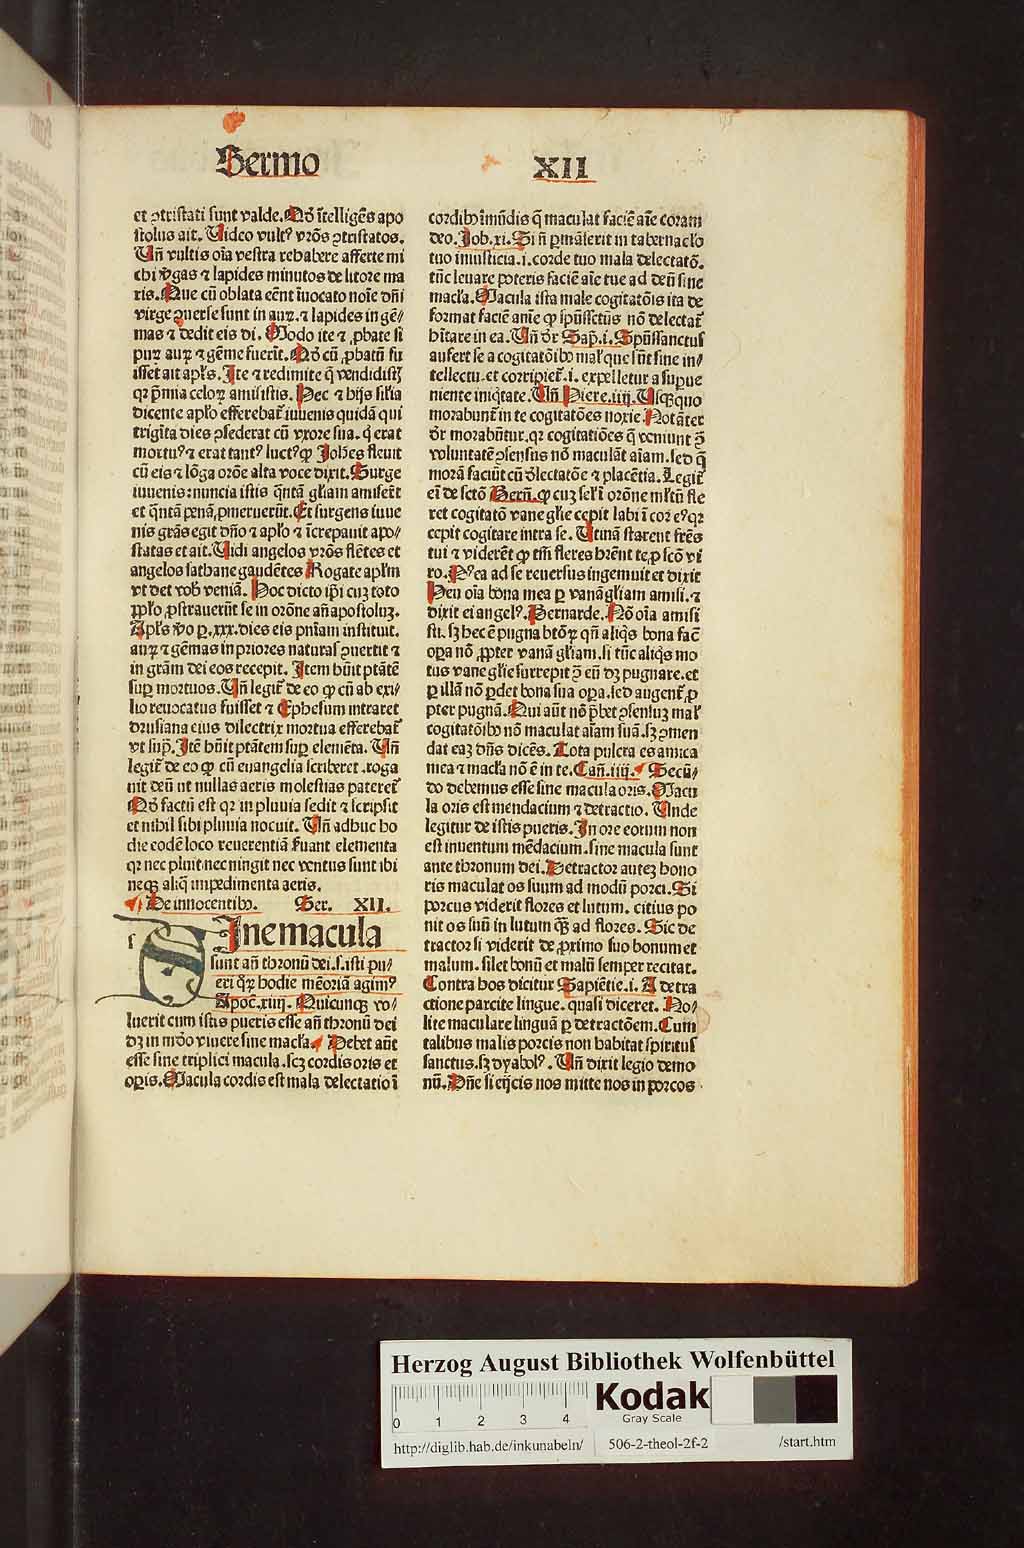 Sermo XII
et ꝯtristati sunt valde. Nō ītelligēs apo
stolus ait. Uideo vultꝰ vr̄os ꝯtristatos.
Uñ vultis oīa vestra rehabere afferte mi
chi v̄gas ⁊ lapides minutos de litore ma
ris. Que cū oblata eēnt īuocato noīe dñi
virge ꝯuerse sunt in auꝝ. ⁊ lapides in gē/
mas ⁊ dedit eis di. Modo ite ⁊ ꝓbate si
puꝝ auꝝ ⁊ gēme fuerīt. Nō cū ꝓbatū fu
isset ait apl̄s. Ite ⁊ redimite q̄ vendidistꝭ
qꝛ p̄mia celoꝝ amisistis. Hec ⁊ hijs sil̄ia
dicente apl̄o efferebat᷑ iuuenis quidā qui
trigīta dies ꝯsederat cū vxore sua. q̇ erat
mortuꝰ ⁊ erat tantꝰ luctꝰ ꝙ Joh̄es fleuit
cū eis ⁊ lōga orōne alta voce dixit. Surge
iuuenis: nuncia istis q̄ntā gl̄iam amiserīt
et q̄ntā penā ꝓmeruerūt. Et surgens iuue
nis grās egit dño ⁊ apl̄o ⁊ īcrepauit apo/
statas et ait. Uidi angelos vr̄os flētes et
angelos sathane gaudētes Rogate apl̄m
vt det vob̄ veniā. Hoc dicto ip̄i cuꝫ toto
ppl̄o ꝓstrauerūt se in orōne añ apostoluꝫ.
Apl̄s v̄o ꝑ .xxx. dies eis pn̄iam instituit.
auꝝ ⁊ gēmas in priores naturas ꝯuertit ⁊
in grām dei eos recepit. Item h̄uit ptātē
suꝑ mortuos. Uñ legit᷑ de eo ꝙ cū ab exi/
lio reuocatus fuisset ⁊ Ephesum intraret
drusiana eius dilectrix mortua efferebat᷑
vt sup̄. Itē h̄uit ptātem suꝑ elemēta. Uñ
legit᷑ de eo ꝙ cū euangelia scriberet .roga
uit deū ut nullas aeris molestias pateret᷑
Nō factū est qꝛ in pluuia sedit ⁊ scripsit
et nihil sibi pluuia nocuit. Uñ adhuc ho
die codē loco reuerentiā s̄uant elementa
qꝛ nec pluit nec ningit nec ventus sunt ibi
neqꝫ aliq̄ impedimenta aeris.
De innocentibꝰ. Ser. XII.
s Sine macula
sunt añ thronū dei. s. isti pu/
eri q̄ꝝ hodie mēoriā agimꝰ
Apoc̄. xiiij. Quicunqꝫ vo/
luerit cum istis pueris esse añ thronū dei
dꝫ in mōo viuere sine macl̄a. Debet aūt
esse sine triplici macula. scꝫ cordis oris et
oꝑis. Macula cordis est mala delectatio ī
cordibꝰ īmūdis q̄ maculat faciē aīe coram
deo. Job. xi. Si ñ ꝑmāserit in tabernacl̄o
tuo iniusticia. i. corde tuo mala delectatō.
tūc leuare poteris faciē aīe tue ad deū sine
macl̄a. Macula ista male cogitatōis ita de
format faciē anīe ꝙ sp̄ussct̄us nō delectat᷑
hītare in ea. Uñ dr̄ Sap. i. Sp̄ussanctus
aufert se a cogitatōibꝰ mal̄ que sūt sine in/
tellectu. et corripiet᷑. i. expelletur a suꝑue
niente iniq̇tate. Uñ Hiere. iiij. Usq̄quo
morabunt᷑ in te cogitatōes noxie. Notāter
dr̄ morabūtur. qꝛ cogitatiōes q̄ veniunt p̄
voluntatē ꝯsensus nō maculāt aīam. sed q̄
morā faciūt cū dlectatōe ⁊ placētia. Legit᷑
eī de sctō Berñ. ꝙ cuꝫ sel̄ ī orōne ml̄tū fle
ret cogitatō vane gl̄ie cepit labi ī cor eꝰ qꝛ
cepit cogitare intra se. Utinā starent fr̄es
tui ⁊ viderēt ꝙ tm̄ fleres hrēnt te ꝓ scō vi
ro. Pꝰea ad se reuersus ingemuit et dixit
Heu oīa bona mea ꝑ vanā gl̄iam amisi. ⁊
dixit ei angelꝰ. Bernarde. Nō oīa amisi
sti. sꝫ hec ē pugna btōꝝ qñ aliq̇s bona fac̄
oꝑa nō ꝓpter vanā gl̄iam. si tūc aliq̇s mo
tus vane gl̄ie surrepit ꝯ eū dꝫ pugnare. et
ꝑ illā nō ꝑdet bona sua oꝑa. sed augent᷑ ꝓ
pter pugnā. Qui aūt nō p̄bet ꝯsensuꝫ mal̄
cogitatōibꝰ nō maculat aīam suā. sꝫ ꝯmen
dat eaꝫ dñs dicēs. Tota pulcra es amica
mea ⁊ macl̄a nō ē in te. Cañ. iiij. Secū/
do debemus esse sine macula oris. Macu
la oris est mendacium ⁊ detractio. Unde
legitur de istis pueris. In ore eorum non
est inuentum mēdacium. sine macula sunt
ante thronum dei. Detractor auteꝫ hono
ris maculat os suum ad modū porci. Si
porcus viderit flores et lutum. citius po
nit os suū in lutum q̄ꝫ ad flores. Sic de
tractor si viderit de ꝓximo suo bonum et
malum. silet bonū et malū semper recitat.
Contra hos dicitur Sapiētie. i. A detra
ctione parcite lingue. quasi diceret. No/
lite maculare linguā ꝑ detractōem. Cum
talibus malis porcis non habitat spiritus
sanctus. sꝫ dyabolꝰ. Uñ dixit legio demo
nū. Dñe si eijcis nos mitte nos in porcos.
Herzog August Bibliothek Wolfenbüttel
0 1 2 3 4
Kodak
Gray Scale
http://diglib.hab.de/inkunabeln/ 506-2-theol-2f-2 /start.htm